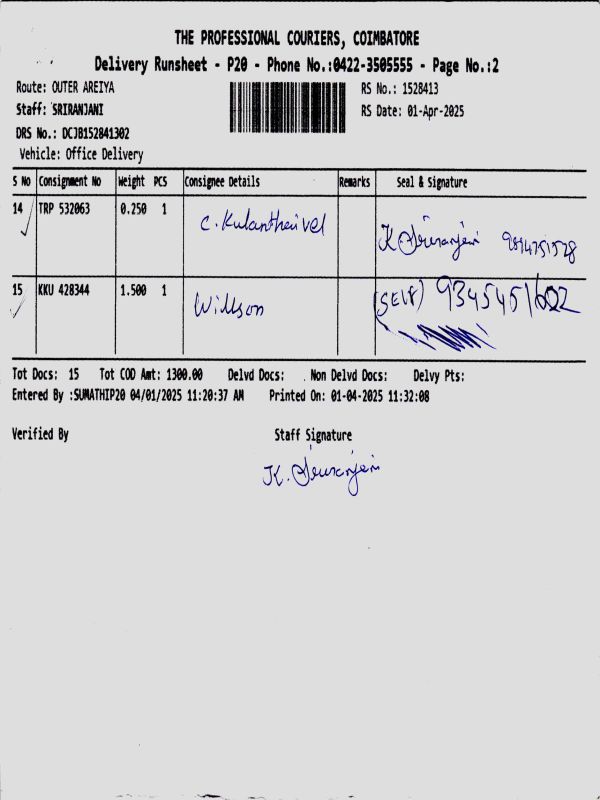 THE PROFESSIONAL COURIERS, COIMBATORE
Delivery Runsheet - P20 - Phone No.:0422-3505555 - Page No.:2
Route: OUTER AREIYA RS No.: 1528413
Staff: SRIRANJANI RS Date: 01-Apr-2025
DRS No.: DCJB152841302
Vehicle: Office Delivery
S No Consignment No Weight PCS Consignee Details Remarks Seal & Signature
14 TRP 532063 0.250 1 C. Kulanthaivel K
15 KKU 428344 1.500 1 Willson (SELF)
Tot Docs: 15 Tot COD Amt: 1300.00 Delvd Docs: Non Delvd Docs: Delvy Pts:
Entered By :SUMATHIP20 04/01/2025 11:20:37 AM Printed On: 01-04-2025 11:32:08
Verified By Staff Signature
K.